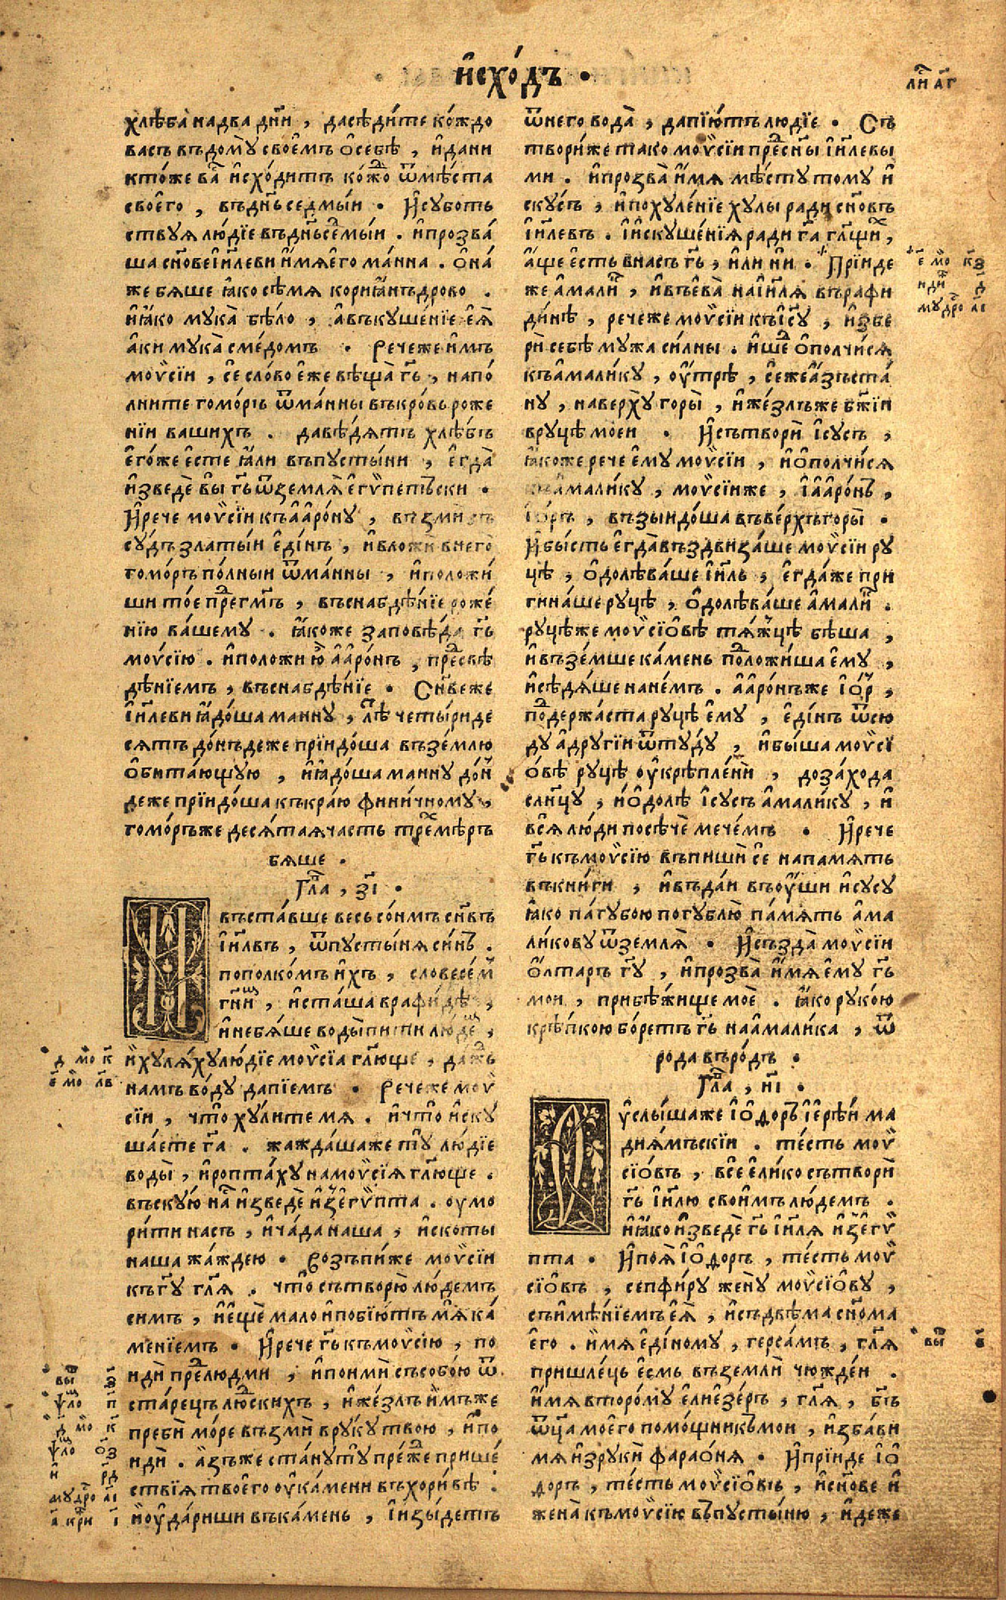 и҆схо́дъ .
ли҇ а҃г
хлѣ́ба на два дн҃и , да сѣди́те ко́ждо
васъ въ дому̀ свое҆мъ ѻ҆ себѣ , и҆ да ни
кто́же ва҇ и҆схо́дитъ ко́ж҇о ѿ мѣ́ста
своего̀ , въ дн҃ь седмы́и . И҆ субо́тъ
ствуя лю́дїе въ дн҃ь се҇мы́и . и҆ прозва́
ша сн҃ове і҆и҃леви и҆́мя е҆го̀ ма́нна . ѻ҆на́
же бяше ꙗ҆́ко сѣ́мя корїа҆нъдрово .
и҆ ꙗ҆́ко мука̀ бѣ́ло , а҆ въкуше́нїе е҆я̀
а҆ки мука̀ с ме́домъ . Рече же и҆мъ
моѵ҆сіи , се҆ сло́во е҆́же вѣща̀ г҃ь , напо́
лните гомо́ръ ѿ ма́нны въ кро́въ роже
нїи ва́шихъ . да вѣ́дятъ хлѣ́бъ
е҆го́же е҆сте ꙗ҆́ли въ пусты́ни , е҆гда̀
и҆зведѐ вы̀ г҃ь ѿ земля̀ е҆гѵ́петъски .
И҆ рече моѵ҆сіи къ а҆аро́ну , възми съ
су́дъ златы́и е҆ди́нъ , и҆ вложѝ в него̀
гомо́ръ по́лныи ѿ ма́нны , и҆ положи́
ши то́е пре҇ г҃мъ , въ снабдѣ́нїе роже́
нїю ва́шему . ꙗ҆́коже заповѣ́да г҃ь
моѵ҆сїю . и҆ положи ю҆̀ а҆аро́нъ , пре҇ свѣ
дѣ́нїемъ , въ снабдѣ́нїе . Сн҃ве же
і҆и҃леви ꙗ҆до́ша манну , лѣ҇ четы́риде
сятъ до́нъдеже прїидо́ша въ зе́млю
ѻ҆бита́ющую , и҆ ꙗ҆до́ша манну до́н҇
деже прїидо́ша къ кра́ю фини́чному ,
гомо́ръ же деся́тая часть тре҇ мѣ́ръ
бяше .
Гл҃а , з҃і .
И въста́вше весь со́нмъ сн҃въ
і҆и҃лвъ , ѿ пусты́ня си́нъ .
по полко́мъ и҆хъ , словесе́м҇
гн҃и҇ , и҆ ста́ша в рафи́дѣ ,
и҆ не бя́ше воды̀ пи́ти лю́де҇ ,
и҆ хуля́ху лю́дїе моѵ҆сіа гл҃юще , да́ждь
намъ во́ду да пїе́мъ . Рече же моѵ҆
сіи , что̀ ху́лите мя . и҆ что̀ и҆ску
ша́ете г҃а . жажда́ша же ту̀ лю́дїе
воды̀ , и҆ ропта́ху на моѵ҆сія гл҃юще .
въскую на҇ и҆зведѐ и҆з̾ е҆гѵ́пта . оумо
ри́ти насъ , и҆ ча́да на́ша , и҆ скоты
на́ша жа́ждею . Возъпи́ же моѵ҆сіи
къ г҃у гл҃я . что̀ сътворю̀ лю́демъ
симъ , и҆ е҆щѐ ма́ло и҆ побїю́тъ мя̀ ка́
менїемъ . И҆ рече г҃ь къ моѵ҆сїю , по
идѝ пре҇ лю́дми , и҆ поимѝ съ собо́ю ѿ
ста́рецъ лю҇скихъ , и҆ же́злъ и҆мъже
пребѝ мо́ре възмѝ в ру́ку твою , и҆ по
идѝ . а҆зъ же ста́ну ту̀ пре́же прише́
ствїя твоего̀ оу҆ ка́мени въ хори́вѣ .
и҆ оу҆да́риши въ ка́мень , і҆ и҆зы́детъ
ѿ него вода̀ , да пїю́тъ лю́дїе . Съ
твори́ же тако моѵ҆сіи пре҇ сн҃ы і҆и҃левы
ми . и҆ прозва̀ и҆́мя мѣ́сту тому̀ и҆
ску́съ , и҆ похуле́нїе хулы̀ ради сн҃овъ
і҆и҃левъ . і҆ и҆скуше́нїя ради г҃а гл҃щи҇ ,
а҆́ще е҆́сть в насъ г҃ь , и҆ли ни . Прїи́де
же а҆мали҇ , и҆ въева̀ на і҆и҃ля въ рафи
ди́нѣ , рече же моѵ҆сіи къ і҆су , и҆збе
рѝ себѣ мужа си́лны . и҆ ше҇ ѻ҆полчи́ся
къ а҆мали́ку , оу҆́трѣ , се҆ же а҆́зъ ста́
ну , на верху̀ горы̀ , и҆ же́злъ же бж҃іи
в руцѣ̀ мое́и . И҆ сътворѝ і҆су́съ ,
ꙗ҆́коже рече е҆му̀ моѵ҆сіи , и҆ ѻ҆полчи́ся
къ а҆мали́ку , моѵ҆сіи же , і҆ а҆аро́нъ ,
і҆ о́ръ , възыидо́ша въ ве́рхъ горы̀ .
И҆ бы́сть е҆гда̀ въздвиза́ше моѵ҆сіи ру
цѣ , ѻ҆долѣва́ше і҆и҃ль , е҆гда́ же при
гина́ше ру́цѣ , ѻ҆долѣва́ше а҆мали҇ .
ру́цѣ же моѵ҆сіо́вѣ тя́жцѣ бѣ́ша ,
и҆ възе́мше ка́мень по҇ложи́ша е҆му̀ ,
и҆ сѣдя́ше на не́мъ . а҆аро́нъ же і҆ о́р ,
по҇держа́ста ру́цѣ е҆му̀ , е҆ди́нъ ѿсю
ду а҆ други́и ѿту́ду , и҆ бы́ша моѵ҆сі
о́вѣ ру́цѣ оу҆крѣпле́ни , до за́хода
сл҃нцу , и҆ ѻ҆долѣ̀ і҆су́съ а҆мали́ку , и҆
вся̀ лю́ди посѣ́че мече́мъ . И҆ рече
г҃ь къ моѵ҆сїю въпишѝ се҆ на па́мять
въ кни́ги , и҆ въда́и въ оу҆́ши и҆су́су
ꙗ҆́ко па́губою погублю̀ па́мять а҆ма
ли́кову ѿ земля̀ . И҆ създа̀ моѵ҆сіи
ѻ҆лта́ръ г҃у , и҆ прозва̀ и҆́мя е҆му̀ г҃ь
мои , прибѣ́жище моѐ . ꙗ҆́ко руко́ю
крѣ́пкою бо́ретъ г҃ь на а҆мали́ка , ѿ
ро́да въ ро́дъ .
Гл҃а , и҃і .
Услы́ша же і҆ѻдо́ръ і҆ере́и ма
диямъскіи . те́сть моѵ҆
сіо́въ , все҆ е҆ли́ко сътворѝ
г҃ь і҆и҃лю свои҆мъ лю́демъ .
и҆ ꙗ҆́ко и҆зведѐ г҃ь і҆и҃ля и҆з̾ е҆гѵ́
пта . И҆ поя̀ і҆ѻдо́ръ , те́сть моѵ҆
сіо́въ , сепфи́ру жену̀ моѵ҆сіо́ву ,
съ и҆мѣ́нїемъ е҆я̀ , и҆ съ двѣма сн҃ома
е҆го̀ . и҆́мя е҆ди́ному , герса́мъ , гл҃я
пришле́цъ е҆́смь въ землѝ чюжде́и .
и҆́мя второ́му е҆лие́зеръ , гл҃я , бг҃ъ
ѿца мое́го помо́щникъ мои , и҆ зба́ви
мя и҆з̾ рукѝ фарао́ня . И҆ прїи́де і҆ѻ
до́ръ , те́сть моѵ҆сіо́въ , и҆ сн҃ове и҆
жена̀ къ моѵ҆сїю въ пусты́ню , и҆де́же